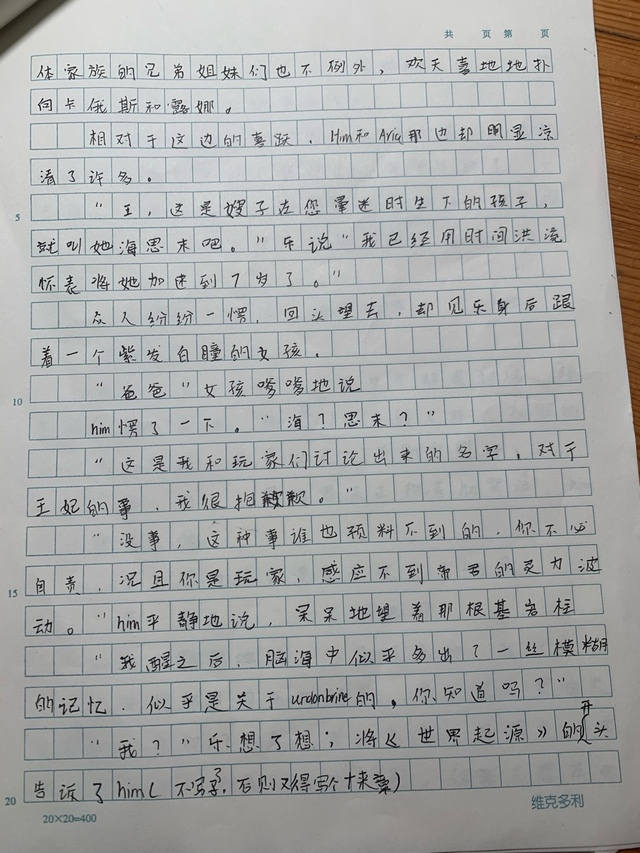 共 页 第 页
体家族的兄弟姐妹们也不例外，欢天喜地地扑
向卡俄斯和露娜。
相对于这边的喜跃，Him和Aria那边却明显凉
清了许多。
5 “王，这是嫂子在您晕迷时生下的孩子，
就叫她海思末吧。”乐说“我已经用时间洪流
怀表将她加速到7岁了。”
众人纷纷一愣，回头望去，却见乐身后跟
着一个紫发白瞳的女孩。
10 “爸爸”女孩嗲嗲地说
him愣了一下。“海？思末？”
“这是我和玩家们讨论出来的名字，对于
王妃的事，我很抱歉。”
“没事，这种事谁也预料不到的，你不必
15 自责，况且你是玩家，感应不到帝君的灵力波
动。”him平静地说，呆呆地望着那根基岩柱
“我醒之后，脑海中似乎多出了一丝模糊
的记忆，似乎是关于urdonbrine的，你知道吗？”
“我？”乐想了想；将《世界起源》的开头
20 告诉了him（不写了，否则又得写个十来章）
20×20=400 维克多利